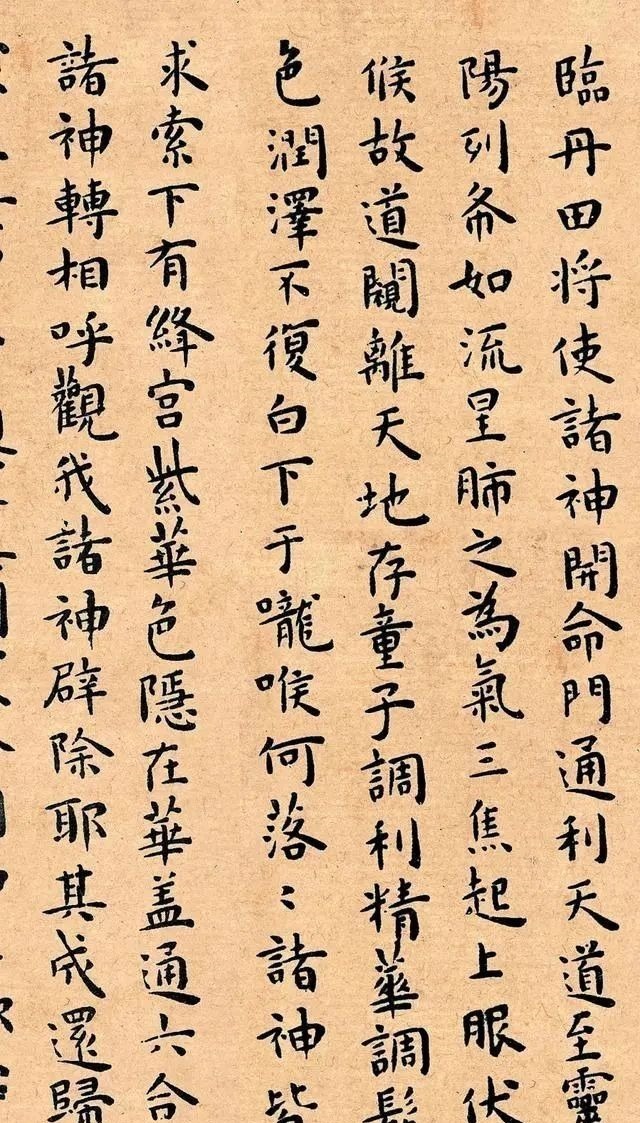 臨丹田将使諸神開命門通利天道至靈
陽列布如流星肺之為氣三焦起上服伏
候故道闚離天地存童子調利精華調髮
色潤澤不復白下于嚨喉何落〻諸神皆
求索下有絳宮紫華色隱在華盖通六合
諸神轉相呼觀我諸神辟除耶其成還歸